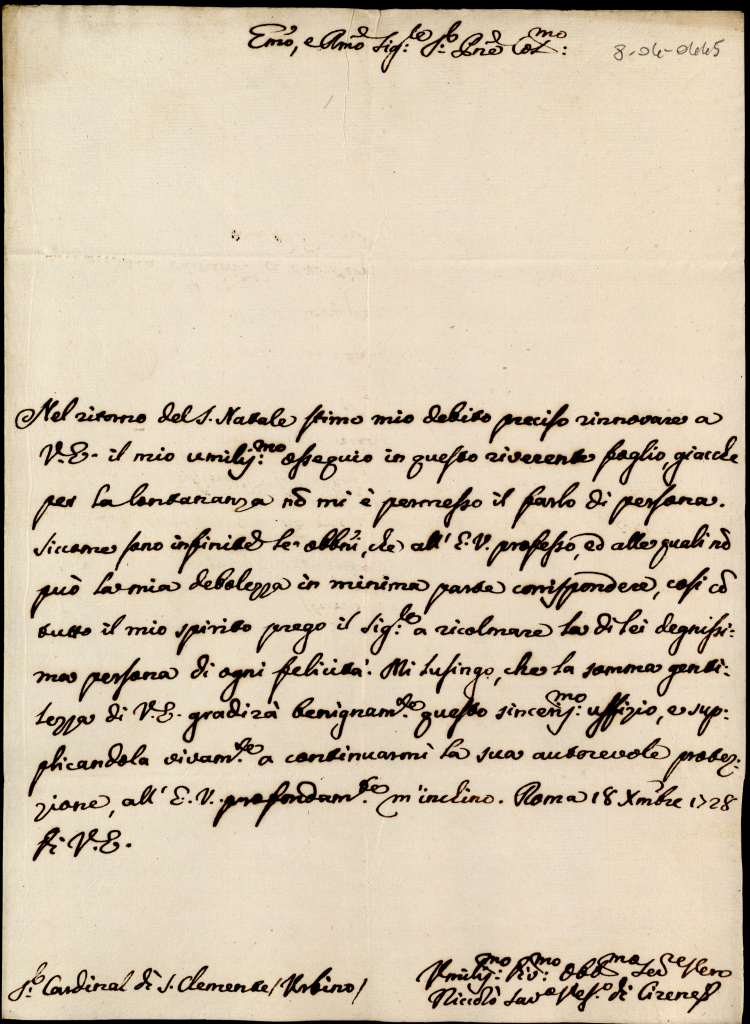 Emo, e Rmo Sig.re S.r Pne Col.mo:
8-04-0445
Nel ritorno del S. Natale stimo mio debito preciso rinnovare a
V.E. il mio umiliss:mo ossequio in questo riverente foglio, giacche
per la lontananza nō mi è permesso il farlo di persona.
Siccome sono infinite le obbni, che all' E.V. professo, ed alle quali nō
può la mia debolezza in minima parte corrispondere, così cō
tutto il mio spirito prego il Sig.re a ricolmare la di lei degnissi:
ma persona di ogni felicità. Mi lusingo, che la somma genti:
lezza di V.E. gradirà benignam.te questo sinceriss:mo uffizio, e sup:
plicandola vivam.te a continuarmi la sua autorevole prote:
zione, all' E.V. profondam.te m'inclino. Roma 18 Xmbre 1728
Di V.E.
S.r Cardinal di S. Clemente / Urbino /
Umiliss:mo Div:mo Obb:mo Ser.re Vero
Niccolò Sav.o Ves.o di Cirene